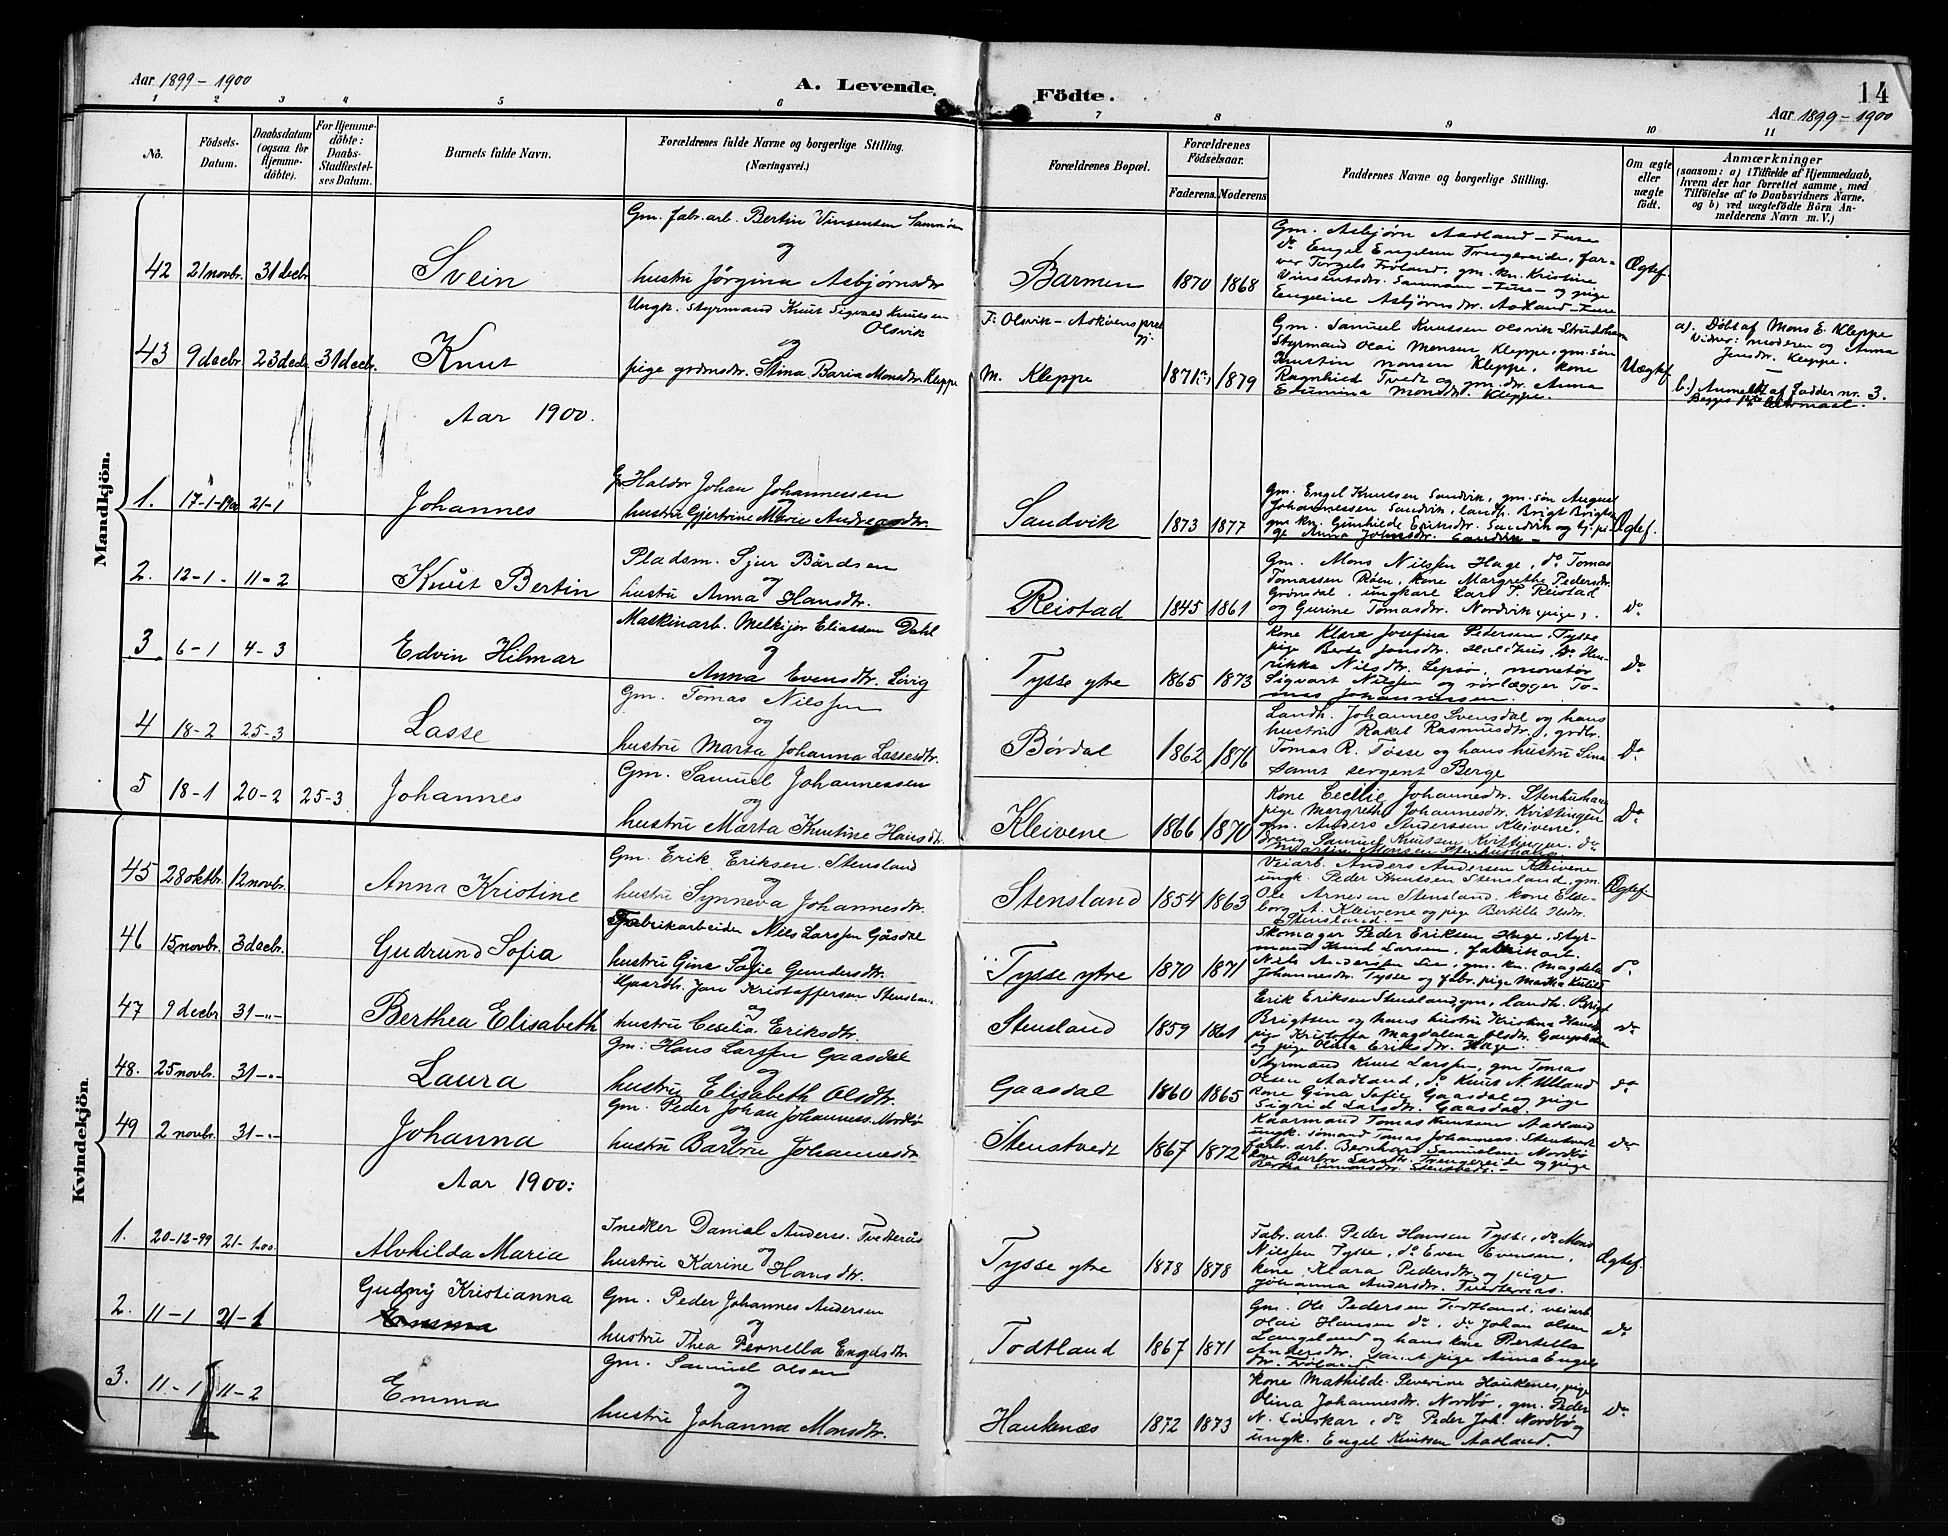 Aar 1899 - 1900
A. Levende Födte.
14
Aar 1899 - 1900
1 2 3 4 5 6 7 8 9 10 11
No.
Födsels-Datum.
Daabsdatum (ogsaa for Hjemme-döbte).
For Hjemme-döbte: Daabs-Stadfestel-ses Datum.
Barnets fulde Navn.
Forældrenes fulde Navne og borgerlige Stilling.
(Næringsvei.)
Forældrenes Bopæl.
Forældrenes Födselsaar.
Faderens. Moderens.
Faddernes Navne og borgerlige Stilling.
Om ægte eller uægte födt.
Anmærkninger
(saasom: a) i Tilfælde af Hjemmedaab,
hvem der har forrettet samme, med
Tilföielse af to Daabsvidners Navne,
og b) ved uægtefödte Börn An-
melderens Navn m. V.)
Mandkjön.
42 21 novbr. 31 decbr. Svein
Gm. fabr. arb. Bertin Vinsentsen
og
hustru Jörgina Asbjørnsdtr
Barmen 1870 1868
Gm. Asbjørn Aadland - Fuse
do Engel Engelsen Trengereide, far-
ver Torgels Fröland, gm. kn. Kristine
Engeline Asbjörnsdr. Aadland - Fuse
Ægtef.
43 9 decbr. 23 decbr. 31 decbr. Knut
Ungk. Styrmand Knut Sigvald Knutsen
Olsvik
og
pige grdmsdr. Stina Baria Monsdtr. Kleppe
F: Olsvik - Askøens
M. Kleppe 1871 1879
Gm. Samuel Knutsen Olsvik
Styrmand Olai Monsen Kleppe, gm. søn
Kristin Monsen Kleppe, kone
Ragnhild Tvedt og gm. dr. Anna
Monsdr. Kleppe.
Uægtef.
a). Döbt af Mons E. Kleppe
Vidner: moderen og Anna
Jensdr. Kleppe.
b.) Anmeldt af Fadder nr. 3.
Aar 1900.
1. 17-1-1900 21-1 Johannes
Haldor Johan Johannessen
hustru Gjertrine Marie Andreasdtr.
Sandvik 1873 1877
Gm. Engel Knutsen Sandvik, gm. søn August
Johannessen Sandvik, landh. Brigt Brigtsen
gm. kn. Gunhilde Eriksdtr. Sandvik og tj. pi-
ge Anna Johnsdtr. Sandvik -
Ægtef.
2. 12-1- 11-2 Knut Bertin
Pladsm. Sjur Bårdsen
og
hustru Anna Hansdtr.
Reistad 1845 1861
Gm. Mons Nilssen Hage, do Tomas
Tomassen Røen, kone Margrethe Pedersdtr.
Grönsdal, ungkarl Lars T. Reistad
og Gurine Tomasdtr. Nordvik (pige).
do
3 6-1 4-3 Edvin Hilmar
Maskinarb. Melkijor Eliassen Dahl
og
Anna Evensdtr. Løvig
Tysse ytre 1865 1873
Kone Klara Josefina Pedersen, Tysse
pige Berte Jonsdtr. do Hen-
rikka Nilsdtr. Lepsø,
Sigvart Nilssen og rörlægger To-
mas Johannessen
Do
4 18-2 25-3 Lasse
Gm. Tomas Nilssen
og
hustru Marta Johanna Lassesdtr.
Børdal 1862 1876
Landh. Johannes Svensdal og hans
hustru Rakel Rasmusdtr., grdbr.
Tomas R. Tøsse og hans hustru Sina
samt sergent Berge
Do
5 18-1 20-2 25-3 Johannes
Gm. Samuel Johannessen
og
hustru Marta Knutine Hansdtr.
Kleivene 1866 1870
Kone Cecilie Johannesdtr. Stenhushavn
pige Margrethe Johannesdtr. Kvittingen
Gm. Anders Anderssen Kleivene,
Dreng Samuel Knutsen Kvittingen, do
Martin Monsen Stenhushavn
Do
Kvindekjön.
45 28 oktbr. 12 novbr. Anna Kristine
Gm. Erik Eriksen Stensland
og
hustru Synneva Johannesdtr.
Stensland 1854 1863
Veiarb. Anders Andersen Kleivene
ungk. Peder Knutsen Stensland, gm.
Ole Arnesen Stensland, kone Else-
borg A. Kleivene og pige Bertille Olsdtr.
Stensland. -
Ægtef
46 15 novbr. 3 decbr. Gudrund Sofia
Fabrikarbeider Nils Larssen Gåsdal
og
hustru Gine Sofie Gundersdtr.
Tysse ytre 1870 1871
Skomager Peder Eriksen Hage, styr-
mand Knud Larsen, fabrikarb.
Nils Anderssen Lie, gm. kn. Magdela
Johannesdtr. Tysse og fabr. pige Martha
do
47 9 decbr 31 -"- Berthea Elisabeth
Gaardb. Jon Kristoffersen Stensland
og
hustru Cecelia Eriksdtr.
Stensland 1859 1861
Erik Eriksen Stensland, gm, landh. Brigt
Brigtsen og hans hustru Kristina Hansdtr
pige Kristoffa Magdalena Olsdtr.
og pige Olina Eriksdtr. Hage.
do
48. 25 novbr. 31 -"- Laura
Gm. Hans Larssen Gaasdal
og
hustru Elisabeth Olsdtr.
Gaasdal 1860 1865
Styrmand Knut Larssen, gm Tomas
Olsen Aadland, do Knut N. Ulland
kone Gina Sofie Gaasdal og pige
Sigrid Larsdtr. Gaasdal.
do
49 2 novbr. 31 -"- Johanna
Gm. Peder Johan Johanness. Nordbø
og
hustru Barbru Johannesdtr
Stenstvedt 1867 1872
Kaarmand Tomas Knutsen Aadland
ungk. sømand Tomas Johanness. Stenstvedt
fabr. arb. Bernhard Samuelsen Nordbø
kone Barbro Larsdtr. Trengereide og pige
Bertha Simonsdtr. Stenstvedt -
do
Aar 1900:
1. 20-12-99 21-1.00. Alvhilda Maria
Snedker Daniel Anders. Tvedterås
og
hustru Karine Hansdtr.
Tysse ytre 1878 1878
Fabr. arb. Peder Hansen Tysse, do Mons
Nilssen Tysse, do Even Evensen,
kone Klara Pedersdtr. og pige
Johanna Andersdtr. Tvedteraas.
Ægtef.
2. 11-1 21-1 Gudny Kristianna
Emma
Gm. Peder Johannes Andersen
og
hustru Thea Pernella Engelsdtr
Todtland 1867 1871
Gm. Ole Pedersen Todtland, veiarb
Olai Hansen do, do Johan Olsen
Langeland og hans kone Bertella
Andersdtr. samt pige Anna Engels
dtr. Fröland
do
3. 11-1 11-2 Emma
Gm. Samuel Olsen
og
hustru Johanna Monsdtr.
Haukenæs 1872 1873
Kone Mathilde Severine Haukenes, pige
Olina Johannesdtr. Nordbø, gm. Peder
N. Livskar, do Peder Joh. Nordbø og
ungk. Engel Knutsen Aadland.
do